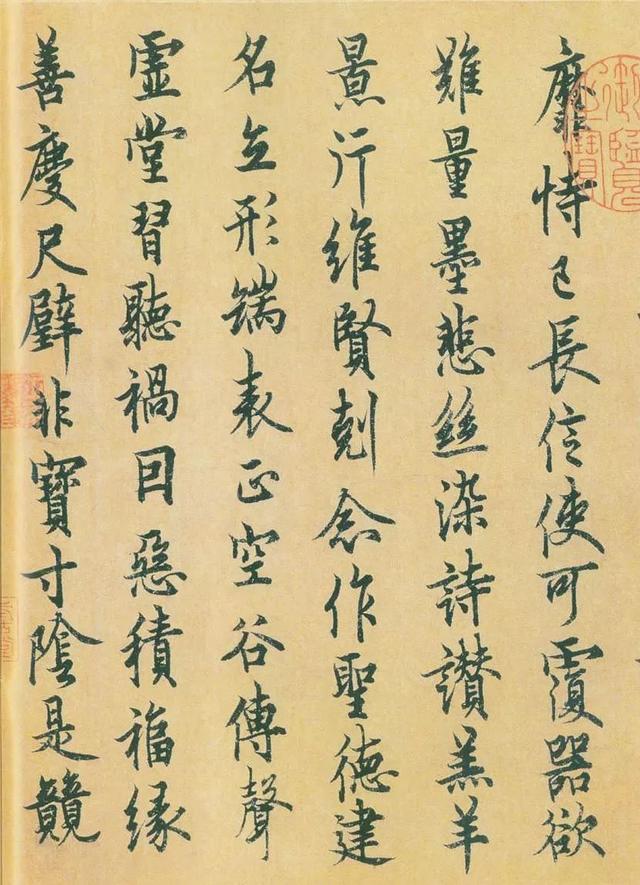 靡恃己長信使可覆器欲
難量墨悲絲染詩讚羔羊
景行維賢剋念作聖德建
名立形端表正空谷傳聲
虛堂習聽禍因惡積福緣
善慶尺璧非寶寸陰是競
御覽之寶